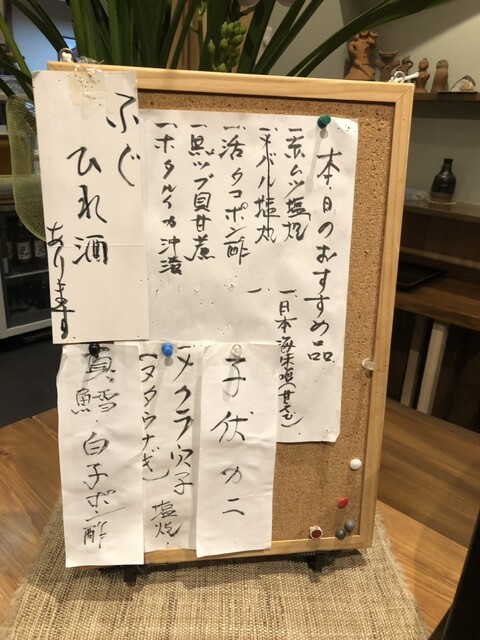 本日のおすすめ品
一赤ムツ塩焼
一メバル塩
一活タコポン酢
一黒ツブ貝甘煮
一ホタルイカ沖漬
一日本海
ふぐ
ひれ酒
あります
子伏カニ
一メクラ穴子 塩焼
(ヌタウナギ)
真鱈 白子ポン酢